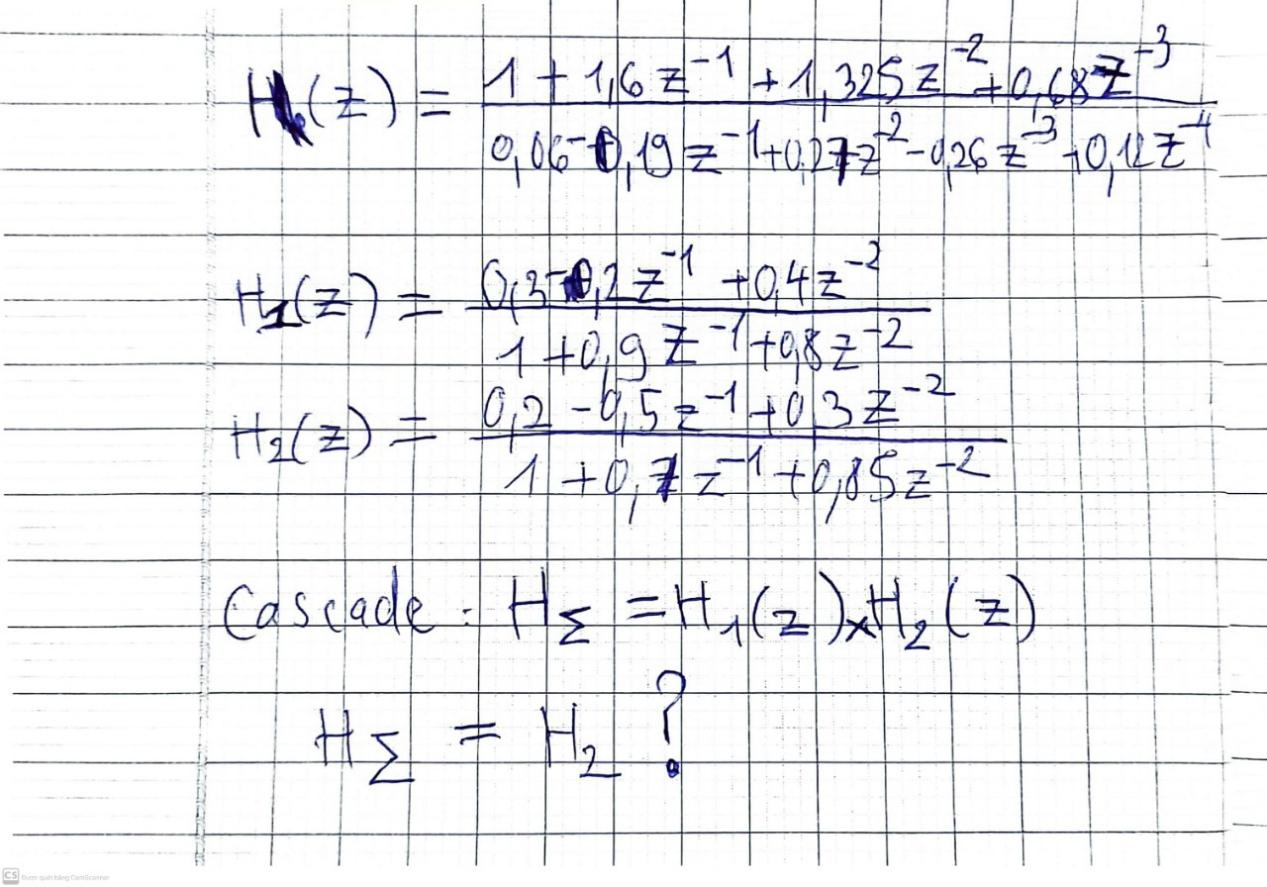 H(z) = 1 + 1,6 z⁻¹ + 1,325 z⁻² + 0,68 z⁻³
0,06 - 0,19 z⁻¹ + 0,27 z⁻² - 0,26 z⁻³ + 0,12 z⁻⁴
H₁(z) = 0,3 - 0,2 z⁻¹ + 0,4 z⁻²
1 + 0,9 z⁻¹ + 0,8 z⁻²
H₂(z) = 0,2 - 0,5 z⁻¹ + 0,3 z⁻²
1 + 0,7 z⁻¹ + 0,85 z⁻²
Cascade : H_Σ = H₁(z) x H₂(z)
H_Σ = H₂ ?
CS Được quét bằng CamScanner